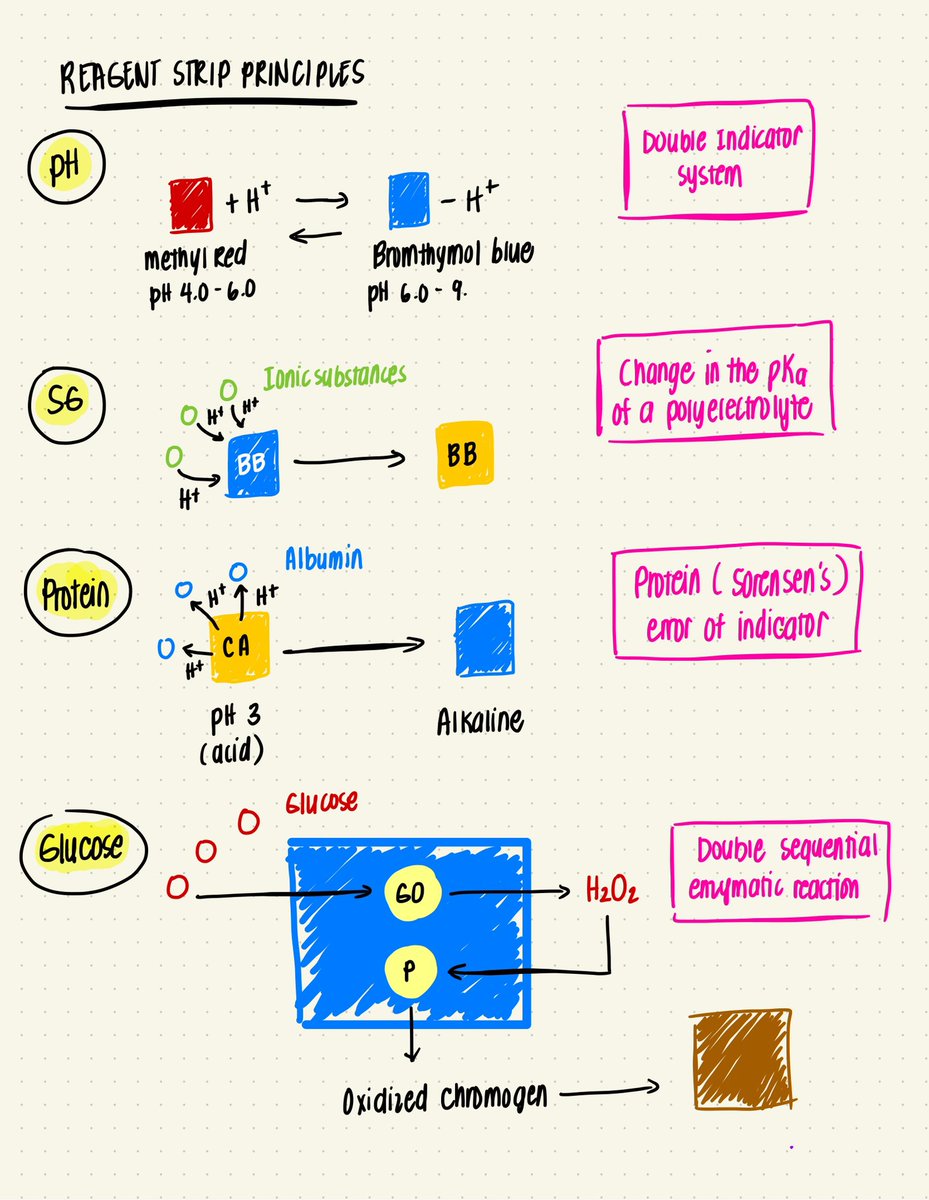 REAGENT STRIP PRINCIPLES
pH
+ H⁺
- H⁺
methyl Red
pH 4.0 - 6.0
Bromthymol blue
pH 6.0 - 9.
Double Indicator
system
SG
Ionic substances
H⁺
H⁺
H⁺
BB
BB
Change in the pKa
of a polyelectrolyte
Protein
Albumin
H⁺
H⁺
H⁺
CA
pH 3
(acid)
Alkaline
Protein (Sorensen's)
error of indicator
Glucose
Glucose
GO
H₂O₂
P
Oxidized chromogen
Double sequential
enzymatic reaction